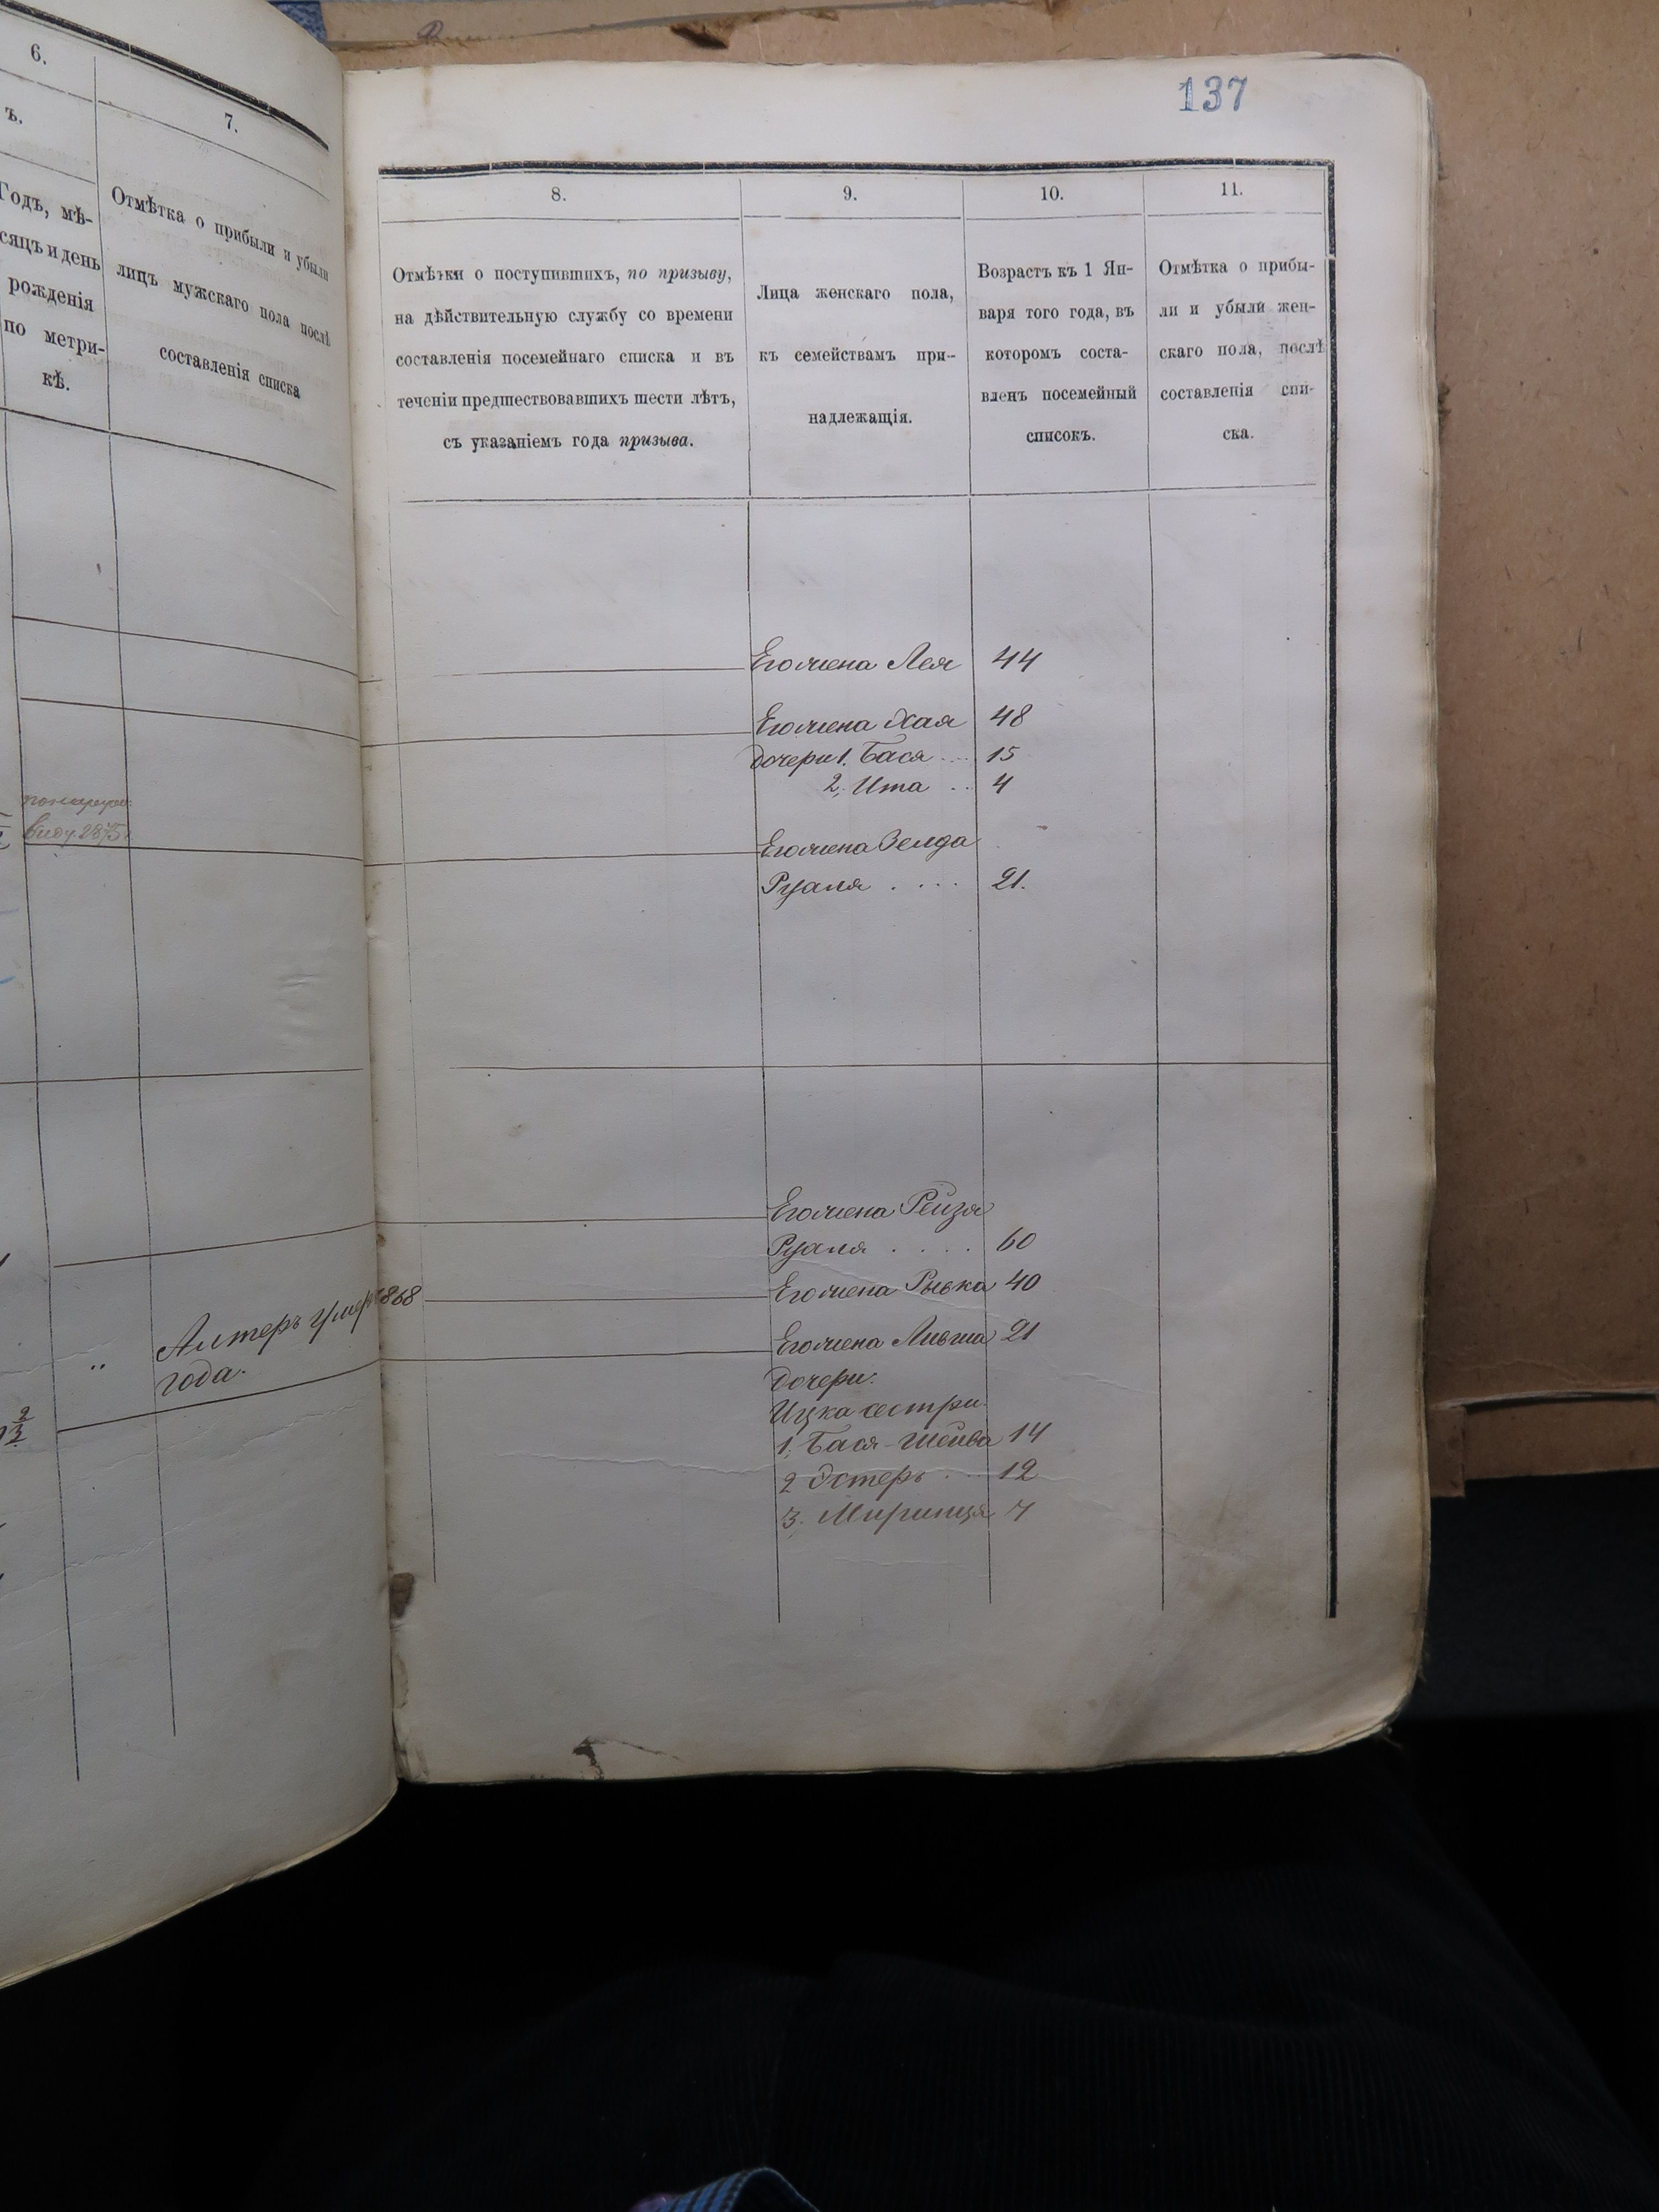 137
6.
7.
ъ.
Годъ, мѣ-
сяцъ и день
рожденія
по метри-
кѣ.
Отмѣтка о прибыли и убыли
лицъ мужскаго пола послѣ
составленія списка
8.
9.
10.
11.
Отмѣтки о поступившихъ, по призыву,
на дѣйствительную службу со времени
составленія посемейнаго списка и въ
теченіи предшествовавшихъ шести лѣтъ,
съ указаніемъ года призыва.
Лица женскаго пола,
къ семействамъ при-
надлежащія.
Возрастъ къ 1 Ян-
варя того года, въ
которомъ соста-
вленъ посемейный
списокъ.
Отмѣтка о прибы-
ли и убыли жен-
скаго пола, послѣ
составленія спи-
ска.
Его жена Лея 44
Его жена Хая 48
дочери 1. Бася .... 15
2. Ита .. 4
Его жена Зелда
Руаля .... 21.
Его жена Рейзя
Руаля .... 60
Его жена Рывка 40
Алтеръ умеръ 1868
года.
Его жена Ливша 21
Дочери:
Ицка сестри
1. Бася-Шейва 14
2 Эстеръ ... 12
3. Миринця 7